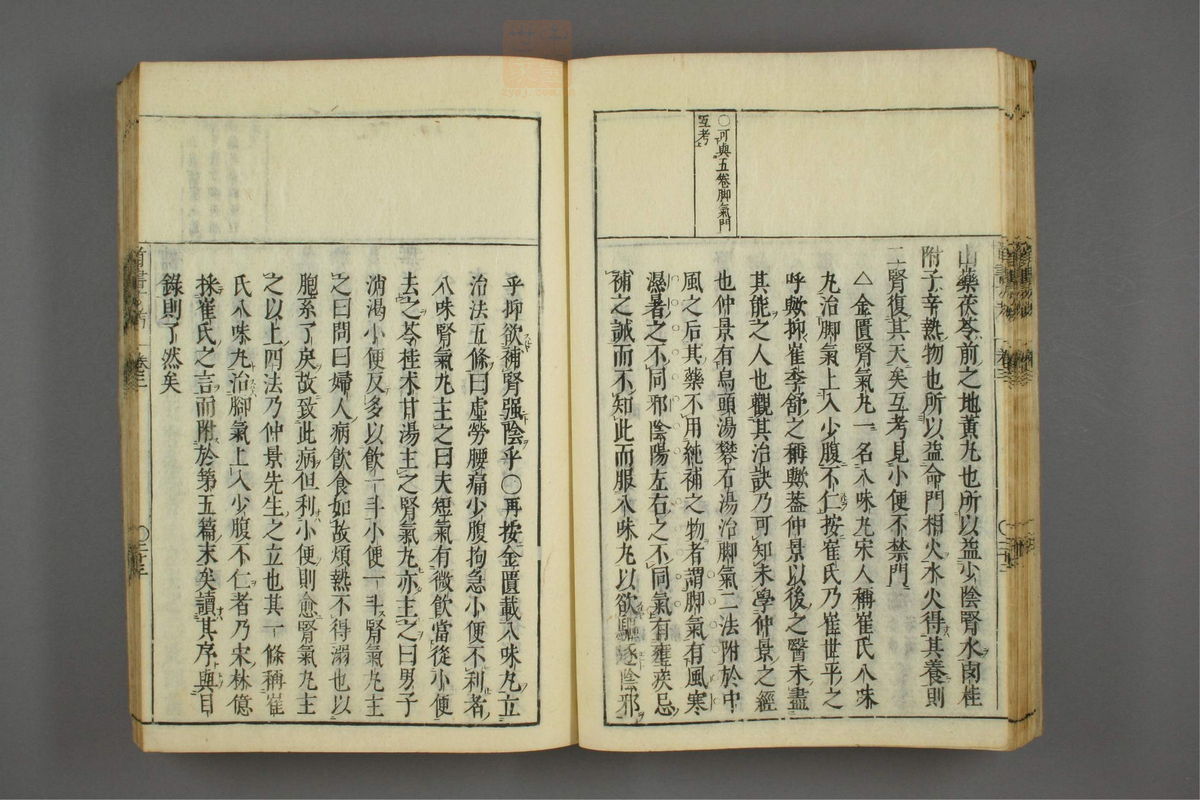 〇可與五卷脚氣門
互考
山藥茯苓前之地黃丸也所以益少陰腎水肉桂
附子辛熱物也所以益命門相火水火得其養則
二腎復其天矣互考見小便不禁門
△金匱腎氣丸一名八味丸宋人稱崔氏八味
丸治脚氣上入少腹不仁按崔氏乃崔世平之
呼歟抑崔季舒之稱歟蓋仲景以後之醫未盡
其能之人也觀其治訣乃可知未學仲景之經
也仲景有烏頭湯礬石湯治脚氣二法附於中
風之后其藥不用純補之物者謂脚氣有風寒
濕暑之不同邪陰陽左右之不同氣有壅疾忌
補之誡而不知此而服八味丸以欲驅逐陰邪
乎抑欲補腎强陰乎〇再按金匱載八味丸立
治法五條曰虛勞腰痛少腹拘急小便不利者
八味腎氣丸主之曰夫短氣有微飲當從小便
去之苓桂朮甘湯主之腎氣丸亦主之曰男子
消渴小便反多以飲一斗小便一斗腎氣丸主
之曰問曰婦人病飲食如故煩熱不得溺也以
胞系了戾故致此病但利小便則愈腎氣丸主
之以上四法乃仲景先生之立也其一條稱崔
氏八味丸治腳氣上入少腹不仁者乃宋林億
採崔氏之言而附於第五篇末矣讀其序與目
錄則了然矣